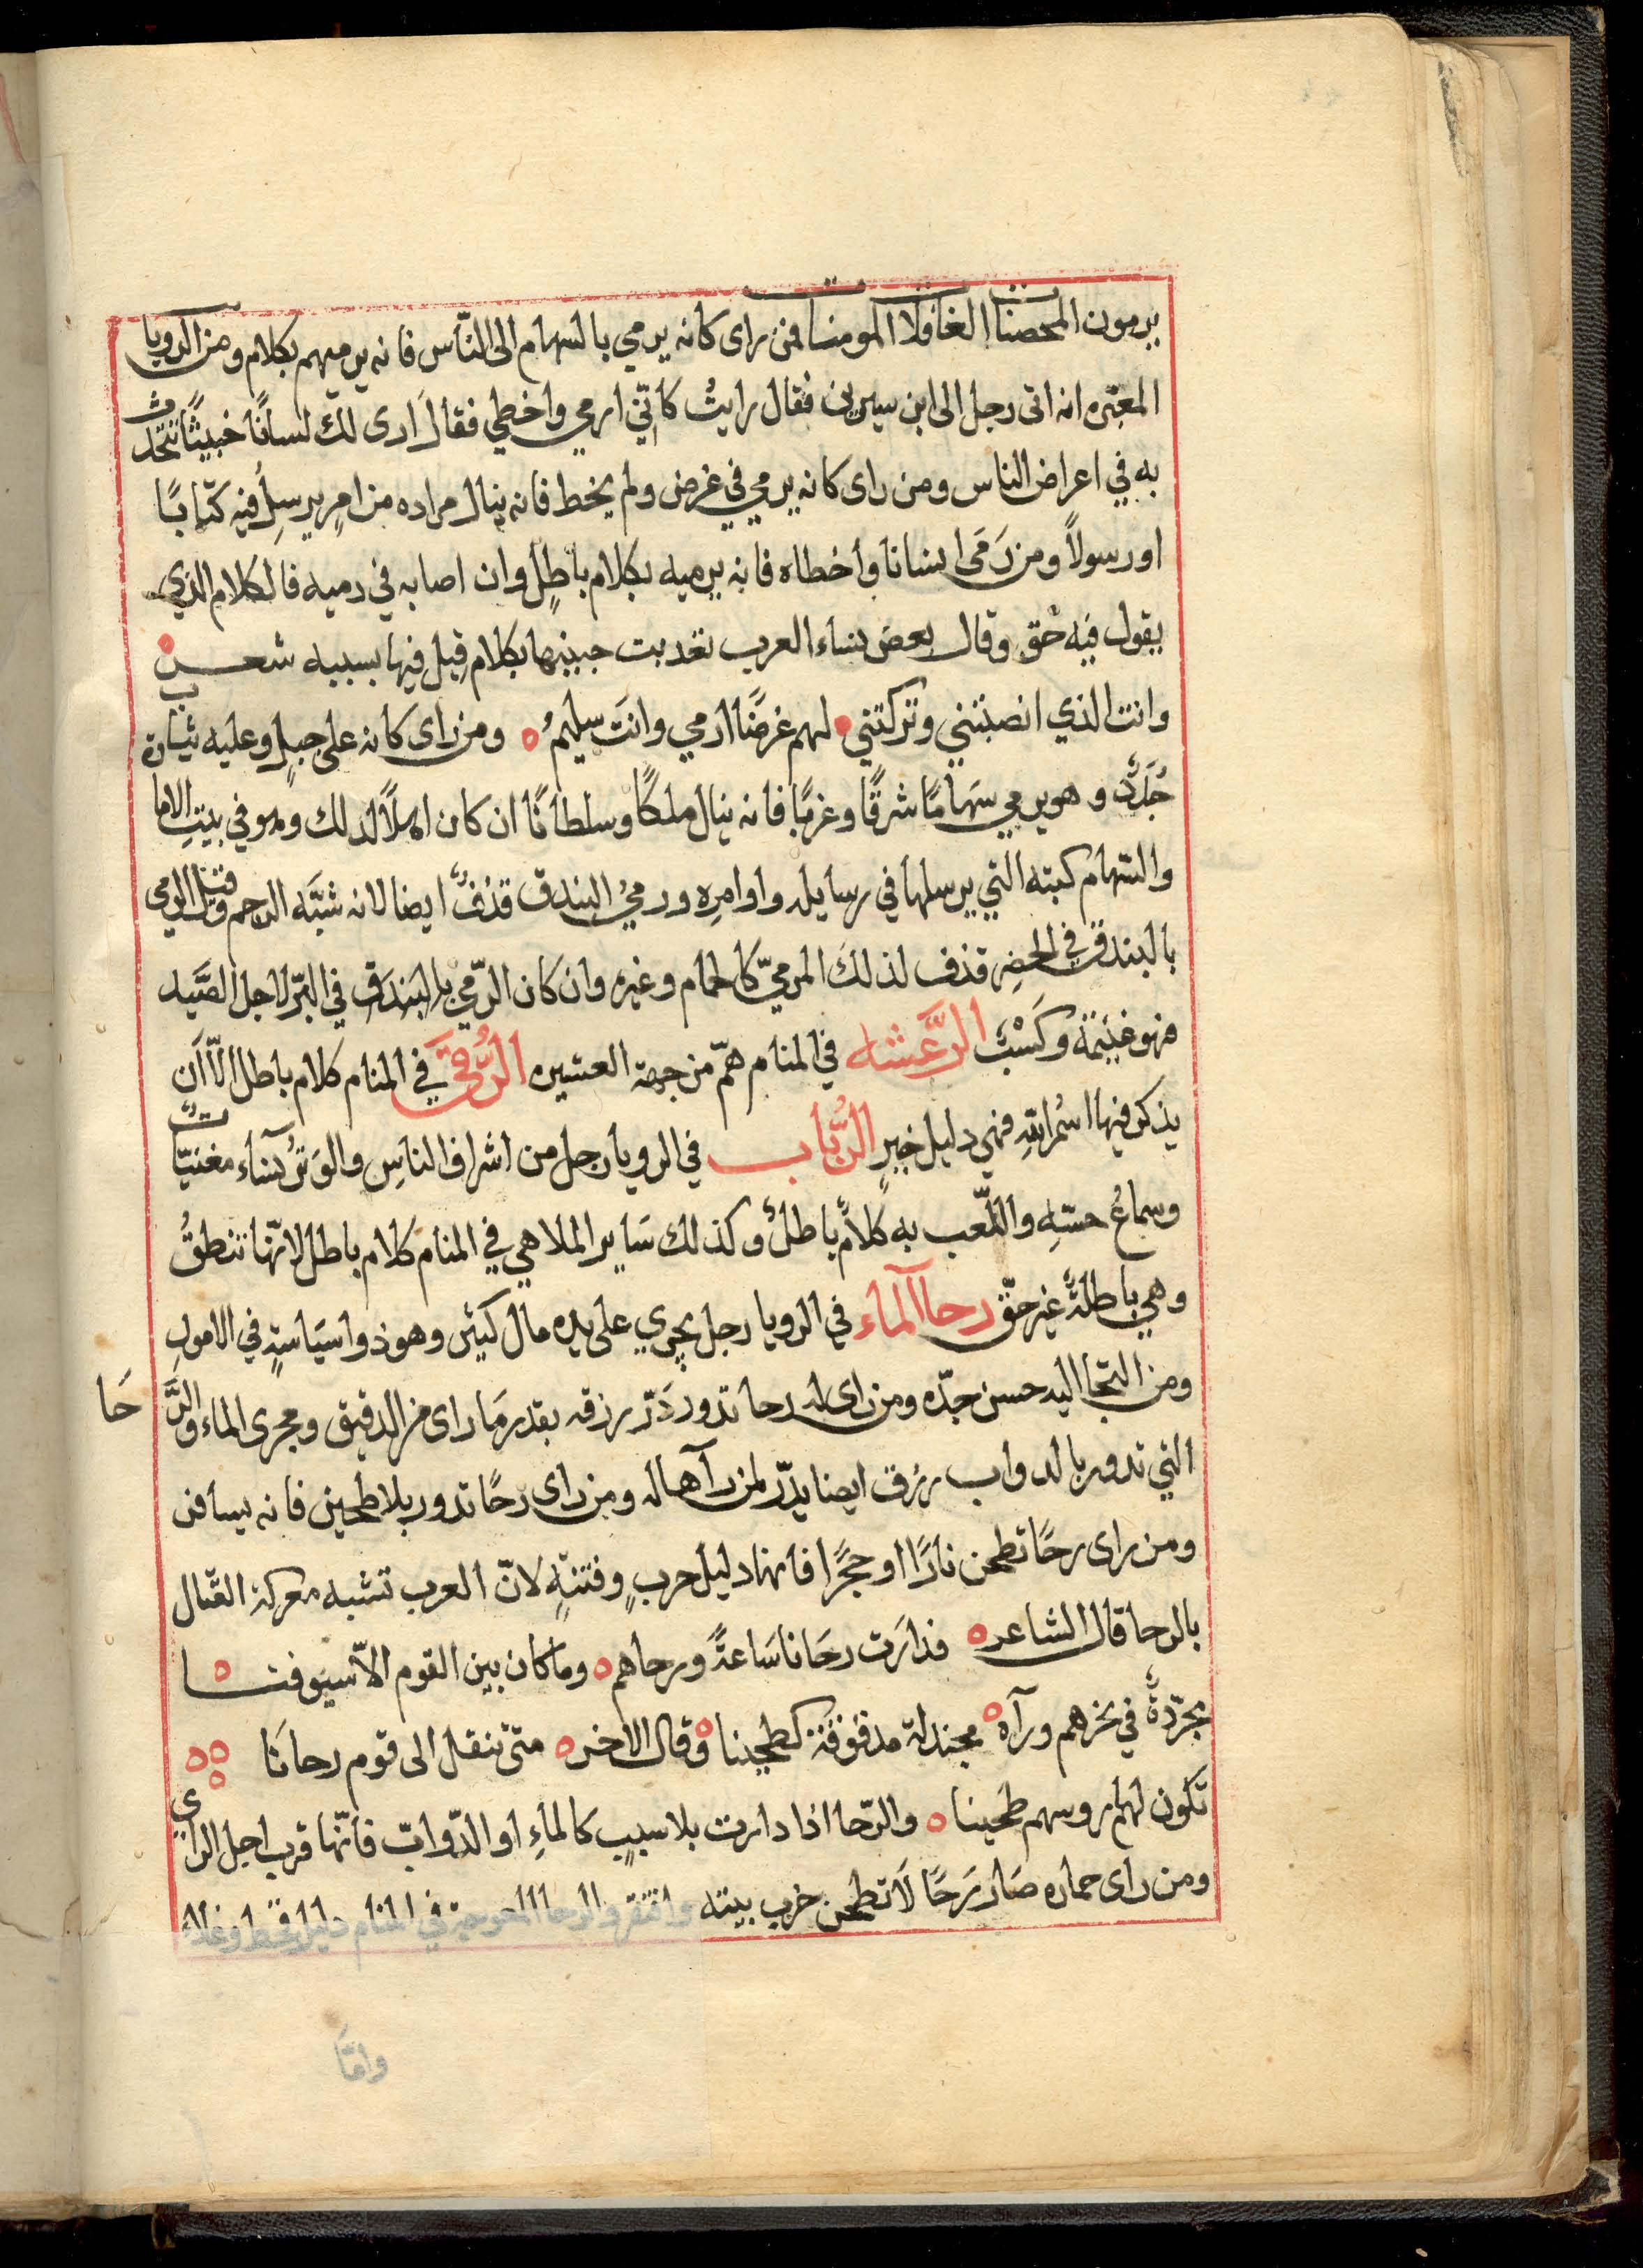 يرمون المحصنات الغافلات المومنات فمن راى كانه يرمي بالسهام الى النّاس فانه يرميهم بكلام ومن الرويا
المعبّره انه اتى رجل الى ابن سيرين فقال رايتُ كانّني ارمي واخطي فقال اَرى لك لسانًا خبيثًا تتحدّث
به في اعراض الناس ومن راى كانه يرمي في غرض ولم يخط فانه ينال مراده من امرٍ يرسِلُ فيه كتابًا
او رسولاً ومن رَمَى انسانا وأخطاه فانه يرميه بكلام باطلٍ وان اصابه في رميه فالكلام الذي
يقول فيه حَق وقال بعض نساء العرب حبيبها بكلام قيل فيها بسببه شعـــر
وانت الذي انصبتني وتركتني لهم غرضًا ارمي وانتَ سليمُ ومن راى كانه على جبلٍ وعليه ثياب
جُدَدٌ وهو يرمي سهامًا شرقًا وغربًا فانه ينال ملكًا وسلطانًا ان كان اهلاً لذلك وهو في بيتِ الاما
والسّهام كتبه التي يرسلها في رسايله واوامرِه ورميُ البندق قذفٌ ايضا لانه شبَّه الرجم وقيل الرمي
بالبندق في الحضِر قذف لذلكَ المرميّ كالحمام وغيره وان كان الرّمي بالبندق في البرّ لاجل الصَّيد
فهو غنيمة وكَسْبٌ الرَّعَشه في المنام همّ من جهة العشيره الرُّقَى في المنام كلام باطل الاّ اَن
يذكر فيها اسمُ اللهِ فهي دليل خيرٍ الرُّباب في الرويا رجل من اشراف الناسِ والوَترُ نساء مغنيّاتٌ
وسماعُ حسّهِ واللّعب به كلامٌ باطلٌ وكذلك سَاير الملاهي في المنام كلام باطل لانّها تنطقُ
وهي باطلةٌ غير حقّ رحا الماء في الرويا رجل يجري على يده مال كثير وهو ذوا سيَاسةٍ في الامورِ
ومن التجا اليه حسن جدّه ومن راى له رحا تدور دَرّ رزقه بقدر مَا راى من الدقيق ومجرى الماء والرَّحَا
التي تدور بالدواب رزق ايضا يدّر لمن رآها له ومن راى رحًا تدور بلا طحين فانه يسافر
ومن راى رحًا تطحن نارًا او حجرًا فانها دليل حربٍ وفتنةٍ لانّ العرب تشبه معركة القتال
بالرحا قال الشاعر فدارَت رحَانا سَاعةً ورحاهم وما كان بين القوم الاّ سيوفنــا
مجرّدةٌ في نحرهم ورآه مجندلة مدقوقة كطحينا وقال الاخر متى تنقل الى قوم رحانَا
تَكون لهام روسهم طحينا والرّحا اذا دارت بلا سببٍ كالماءِ او الدّوابّ فانّها قرب اجل الراي
ومن راى حماره صَار رَحًا لَا تطحن خرب بيته وافتقر والرحا المعوجة في المنام دليل قحط وغلاء
وامّا